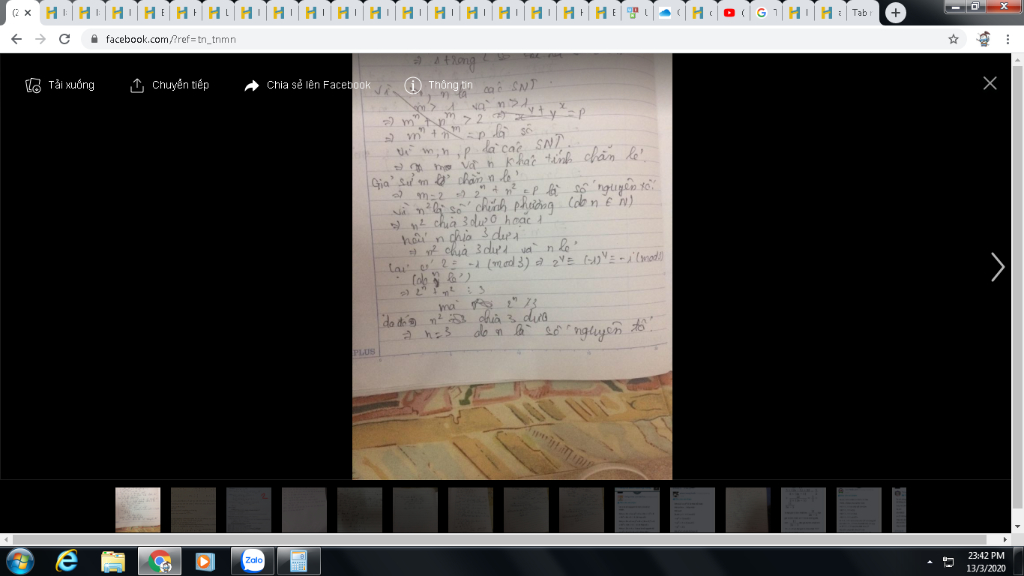 facebook.com/?ref=tn_tnmn
Tab
Tải xuống
Chuyển tiếp
Chia sẻ lên Facebook
Thông tin
là các SNT
m > 1 và n > 1
⇒ m^n + n^m > 2 ⇒ x^y + y^x = p
⇒ m^n + n^m = p là số
vì m, n, p là các SNT.
⇒ m và n khác tính chẵn lẻ.
Giả sử m chẵn n lẻ
⇒ m=2 ⇒ 2^n + n^2 = p là số nguyên tố.
vì n^2 là số chính phương (do n ∈ N)
⇒ n^2 chia 3 dư 0 hoặc 1
nếu n chia 3 dư 1
⇒ n^2 chia 3 dư 1 và n lẻ
2 ≡ -1 (mod 3) ⇒ 2^v ≡ (-1)^v ≡ -1 (mod 3)
(do lẻ)
⇒ 2^n + n^2 ⋮ 3
mà
do đó n^2 chia 3 dư 0
⇒ n=3 do n là số nguyên tố
PLUS
Zalo
23:42 PM
13/3/2020